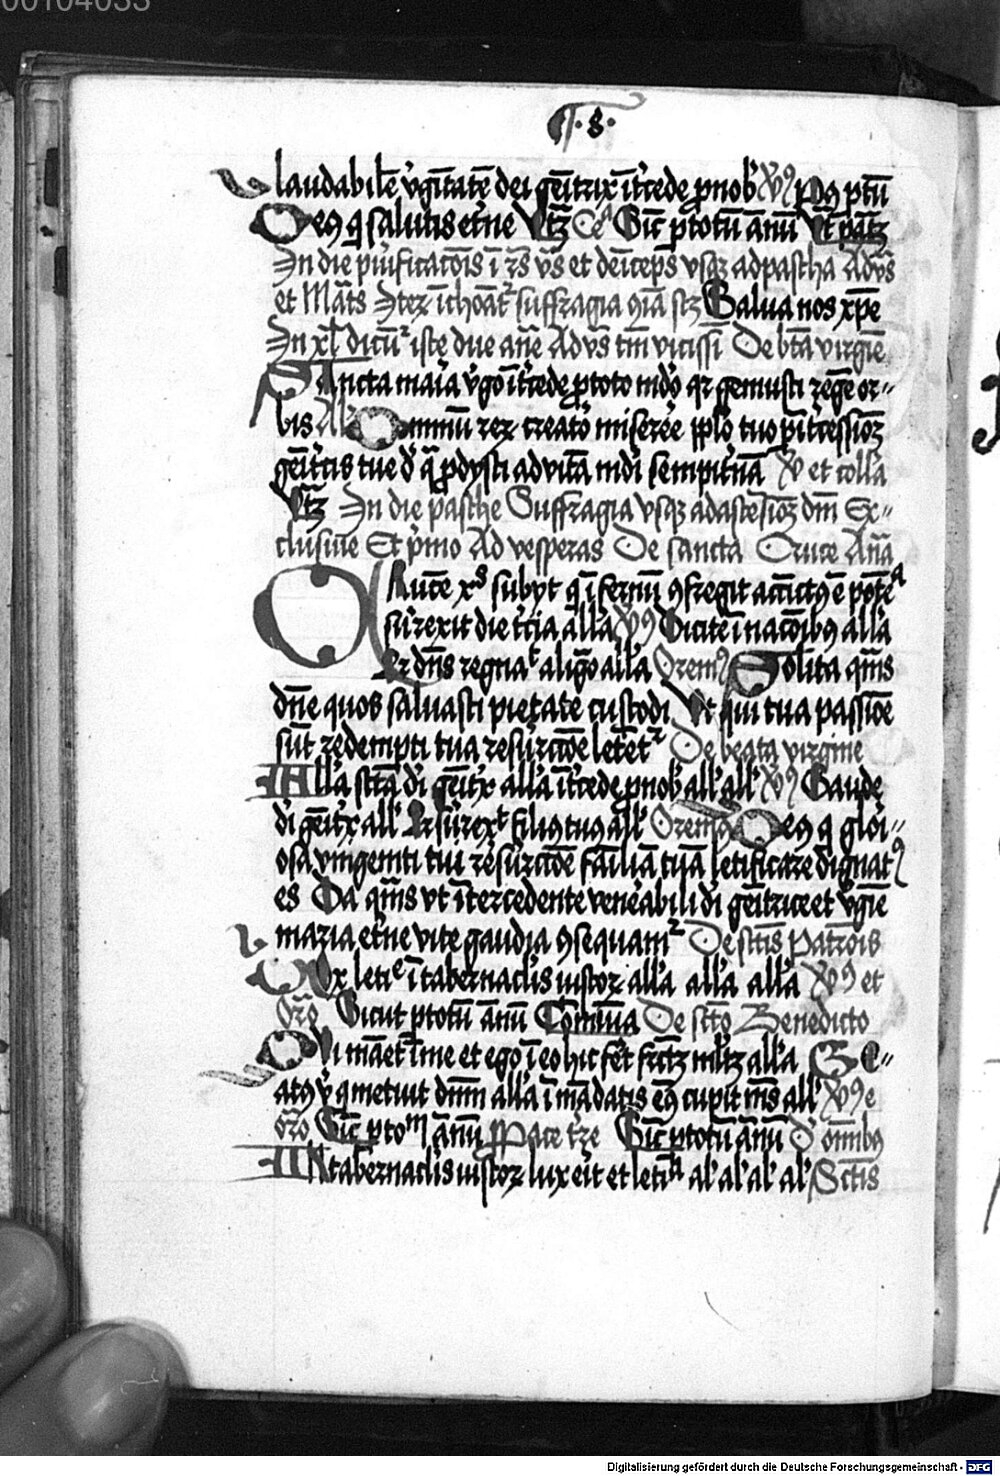 00104033
.8.
laudabilē v̄gītatē dei gēitrix ītcede pnob̄ V⁹ Pꝰ ptū
Deꝰ q salutis etne Vtz Ce Sic̄ ptotū ānū Vt pātz
In die pūificatōis ī zs v̄s et deīceps vsqz ad pascha Advs
et Māts Itez īchoāt suffragia qīa stz Salua nos xp̄e
In xl dicū iste due anē Advs tm̄ vicissī De btā virgīe
SAncta maīa v̄go ītcede ptoto mdo qz gemusti regē or-
bis All Omnīū rex creatō miserēe pplo tuo p ītcessioz
gēitcis tue d̄ q̄ pdysti ad vitā mdi sempitnā V et collā
Vtz In die pasche Suffragia vsqz ad ascēsioz dm̄ Ex-
clusiue Et p̄mo Ad vesperas De sancta Cruce Anā
CRucē xs subyt q īfernū 9fregit accīctꝰ ē potēa
surexit die tcia allā V⁹ Dicite ī nacōibꝰ allā
Qz dn̄s regnat a ligo allā Orem⁹ Solita qm̄s
dn̄e quos saluasti pietate custodi Vt qui tua passiōe
sūt redempti tua resurcciōe letēt De beata virgine
Allā sctā di gēitx allā ītcede pnob̄ all all V⁹ Gaude
di gēitx all Qz surext filiꝰ tuꝰ all Oremꝰ Deꝰ q gloī-
osa vnigeniti tui resurcciōe familiā tuā letificare dignatꝰ
es Da qm̄s vt īntercedente venēabili di gēitrice et v̄gīe
maria etne vite gaudia 9sequamr De sctīs Patrōis
Lux letie ī tabernaclis iustoz allā allā allā V⁹ et
Oro Sicut ptotū ānū Com̄ūa De scto Benedicto
Qui māet ī me et ego ī eo hic fēt fructz mltz allā Be-
atꝰ v q metuit dnm̄ allā ī mādatis eꝰ cupit nīs all V⁹ e
oro Sic̄ ptom ānū P Pace tze Sic̄ ptotū ānū D omībꝰ
IN tabernaclis iustoz lux eīt et letia al al al al Sctīs
Digitalisierung gefördert durch die Deutsche Forschungsgemeinschaft - DFG